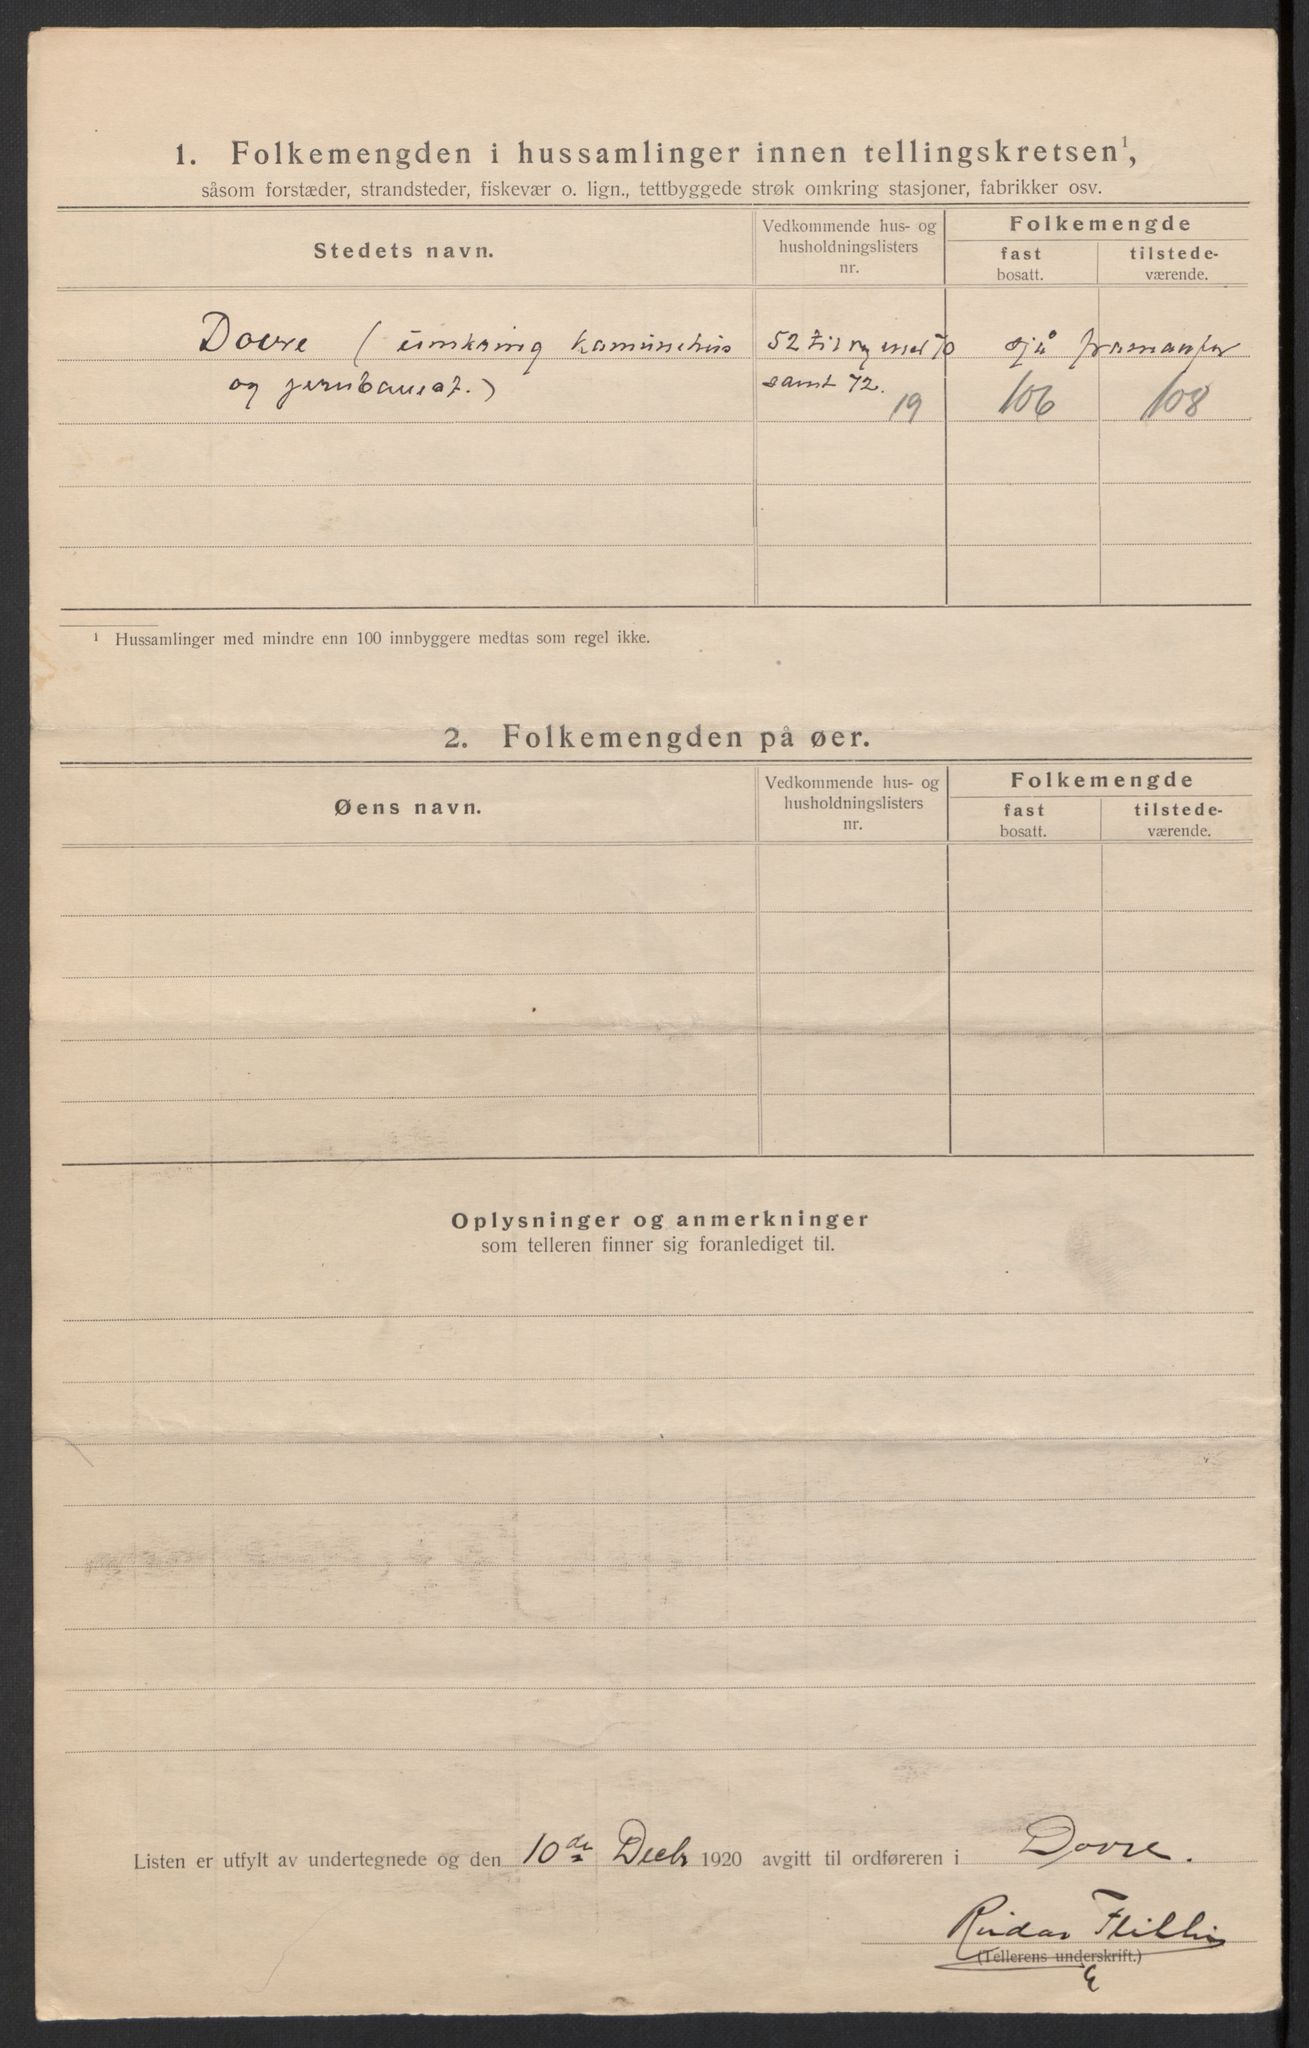 1. Folkemengden i hussamlinger innen tellingskretsen¹,
såsom forstæder, strandsteder, fiskevær o. lign., tettbyggede strøk omkring stasjoner, fabrikker osv.
Stedets navn.
Vedkommende hus- og
husholdningslisters
nr.
Folkemengde
fast
bosatt.
tilstede-
værende.
Dovre (umkring kamunehus 52 til og med 70 sjå framanfor
og jernbanest.) samt 72.
19 106 108
¹ Hussamlinger med mindre enn 100 innbyggere medtas som regel ikke.
2. Folkemengden på øer.
Øens navn.
Vedkommende hus- og
husholdningslisters
nr.
Folkemengde
fast
bosatt.
tilstede-
værende.
Oplysninger og anmerkninger
som telleren finner sig foranlediget til.
Listen er utfylt av undertegnede og den 10de Decbr 1920 avgitt til ordføreren i Dovre.
Reidar
(Tellerens underskrift.)